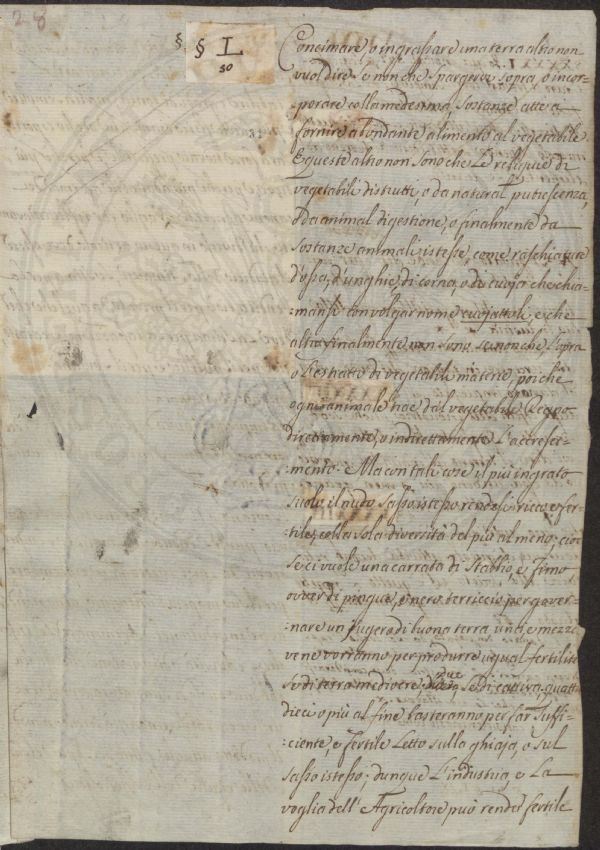 28
§. § I
50
Concimare, o ingrassare una terra altro non
vuol dire, e non che spargerve sopra, o incor-
-porare colla medesima, sostanze atte a
31
fornire abondante alimento al vegetabile
E queste altro non sono che Le reliquie di
vegetabili distrutti, o da natural putrescenza,
o da animal digestione, o finalmente da
sostanze animali istesse, come raschiature
d'ossa, d'unghie, di corna, o di cuoja che chia-
-mansi con volgar nome cuojattoli, e che
altro finalmente non sono senonche L'opra
o L'estratto di vegetabili materie, poiche
ogni animale trae dal vegetabile Regno
direttamente, o indirettamente L'accresci-
-mento. Ma con tali cose il più ingrato
suolo, il nudo sasso istesso rendesi ricco, e fer-
tile, colla sola diversità del più al meno; cioe
se ci vuole una carrata di Stabbio, e Fimo
ovver di pingue, e nero terriccio per gover-
-nare un jugero di buona terra, una, e mezza
ve ne vorranno per produrre ugual fertilità
se di terra mediocre, due, se di cattiva, quattro
dieci o più al fine basteranno per far suffi-
-ciente, e fertile Letto sulla ghiaja, o sul
sasso istesso; dunque L'industria, e La
voglia dell' Agricoltore può render fertile